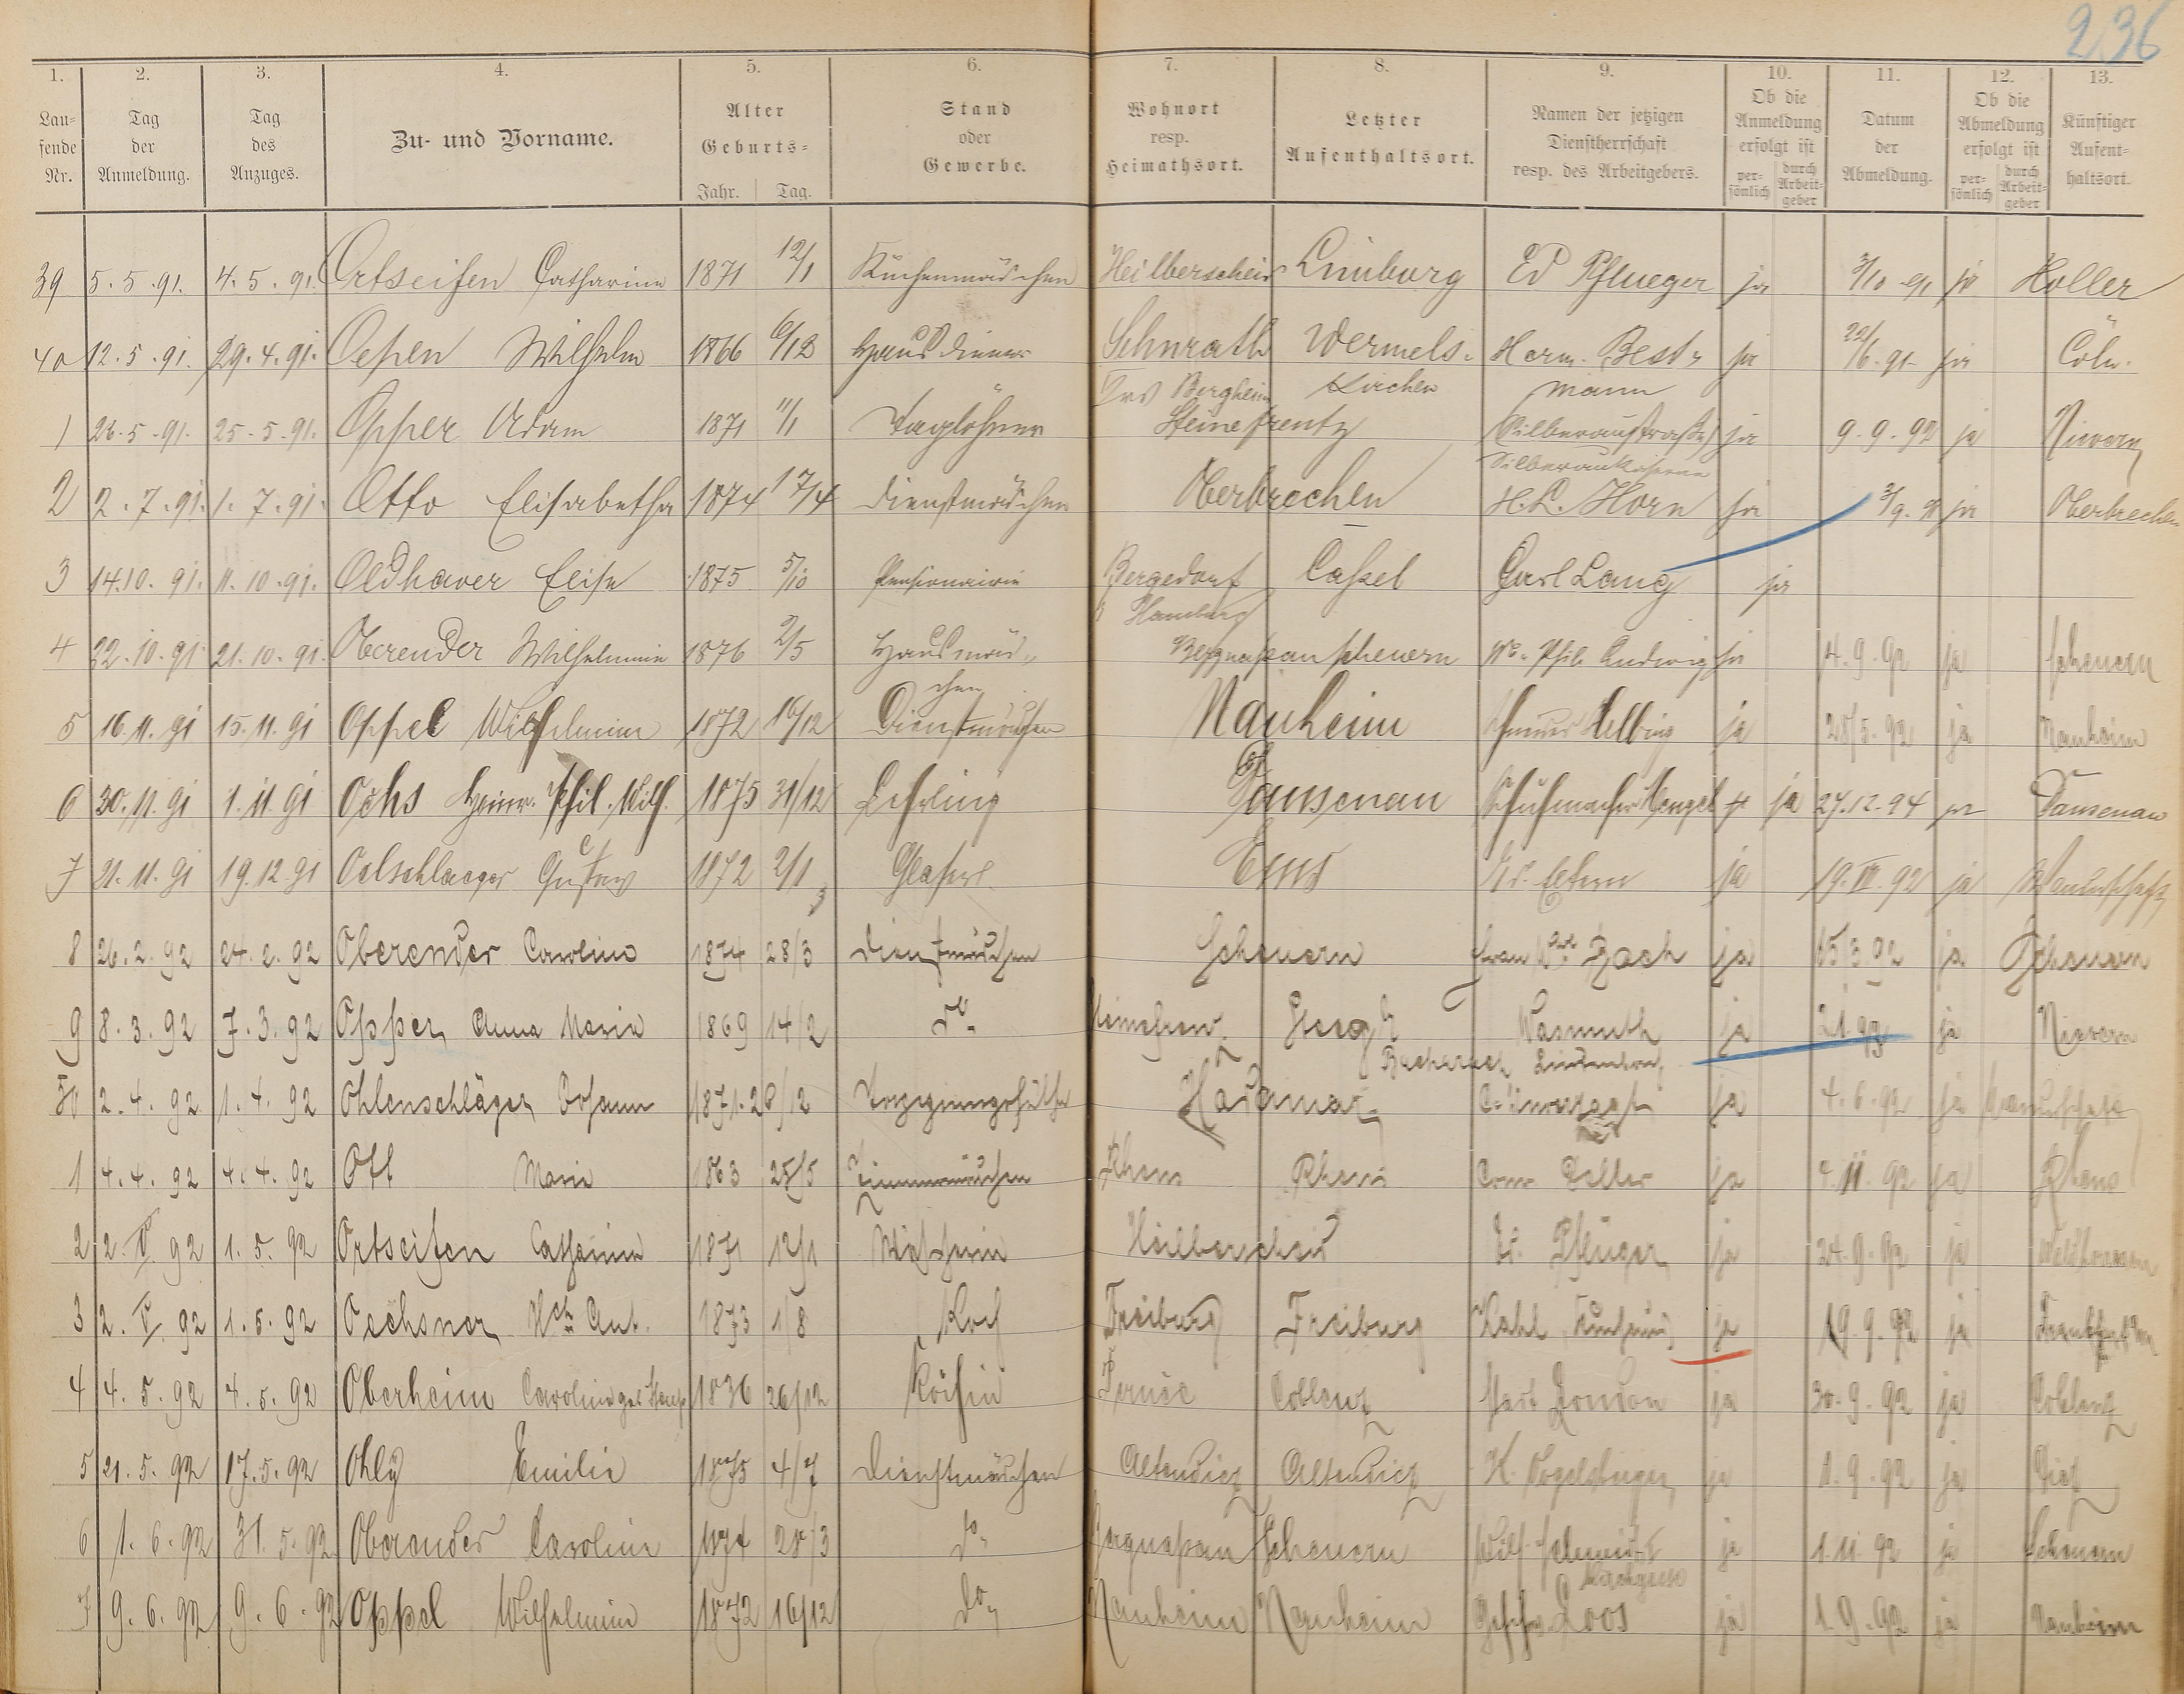 236
1. 2. 3. 4. 5. 6. 7. 8. 9. 10. 11. 12. 13.
Lau-fende Nr. Tag der Anmeldung. Tag des Anzuges. Zu- und Vorname. Alter Geburts- Jahr. Tag. Stand oder Gewerbe. Wohnort resp. Heimathsort. Letzter Aufenthaltsort. Namen der jetzigen Dienstherrschaft resp. des Arbeitgebers. Ob die Anmeldung erfolgt ist per-sönlich durch Arbeit-geber Datum der Abmeldung. Ob die Abmeldung erfolgt ist per-sönlich durch Arbeit-geber Künftiger Aufent-haltsort.
39 5.5.91. 4.5.91. Ortseifen Catharina 1871 12/1 Küchenmädchen Heilberscheid Limburg Ed Pflueger ja 3/10 91 ja Holler
40 12.5.91. 29.4.91. Oepen Wilhelm 1866 6/12 Hausdiener Sehnrath Wermels- Herm. Best- ja 22/6.91 ja Cöln.
Bergheim kirchen mann
1 26.5.91. 25.5.91. Opper Adam 1871 11/1 Taglöhner Steinefrentz Silberaustraße ja 9.9.92 ja Nievern
2 2.7.91. 1.7.91. Otto Elisabetha 1874 17/4 Dienstmädchen Oberbrechen H.L. Horn ja 3/9. 91 ja Oberbrechen
3 14.10.91. 11.10.91. Oldhaver Elise 1875 5/10 Pensionairin Bergedorf Cassel Carl Lang ja
Hamburg
4 22.10.91. 21.10.91. Oberender Wilhelmine 1876 2/5 Hausmäd- Bergnassau Scheuern Wb. Phil. Ludwig ja 4.9.92 ja Scheuern
chen
5 16.11.91 15.11.91 Oppel Wilhelmine 1872 16/12 Dienstmädchen Nauheim Helbing ja 28/5.92 ja Nauheim
6 30.11.91 1.11.91 Ochs Heinr. Phil. Wilh. 1875 31/12 Lehrling Dausenau Schuhmacher Mengel ja 27.12.94 ja Dausenau
7 21.11.91 19.12.91 Oelschlaeger Gustav 1872 2/1 Glaserl. Ems Eltern ja 19.III.92 ja Wanderschaft
8 26.2.92 24.2.92 Oberender Caroline 1874 28/3 Dienstmädchen Scheuern Frau Bach ja 15 3 92 ja Scheuern
9 8.3.92 7.3.92 Opper Anna Maria 1869 14/2 do Wasmuth ja ja Nievern
Bacharach Lindenbach
50 2.4.92 1.4.92 Ohlenschläger Johann 1871. 26/12 Hadamar ja 4.6.92 ja Wanderschaft
1 4.4.92 4.4.92 Ott Maria 1863 25/5 Zimmermädchen Rhens Rhens ja 4.11.92 ja Rhens
2 2.V.92 1.5.92 Ortseifen Catharina 1871 12/1 Wäscherin Heilberscheid Ed. Pflüger ja 24.9.92 ja
3 2.V.92 1.5.92 Oechsner Hch Ant. 1873 1/8 Koch Freiburg Freiburg ja 19.9.92 ja Frankfurt a/M
4 4.5.92 4.5.92 Oberheim Caroline geb. 1836 26/12 Köchin Coblenz ja 30.9.92 ja Coblenz
5 21.5.92 17.5.92 Ohly Emilie 1875 4/7 Dienstmädchen Altendiez Altendiez K. Vogelsberger ja 1.9.92 ja Diez
6 1.6.92 31.5.92 Oberender Caroline 1874 28/3 do Bergnassau Scheuern Wilh. Schmidt ja 1.11.92 ja Scheuern
Kirchgasse
7 9.6.92 9.6.92 Oppel Wilhelmine 1872 16/12 do Nauheim Nauheim Loos ja 1.9.92 ja Nauheim